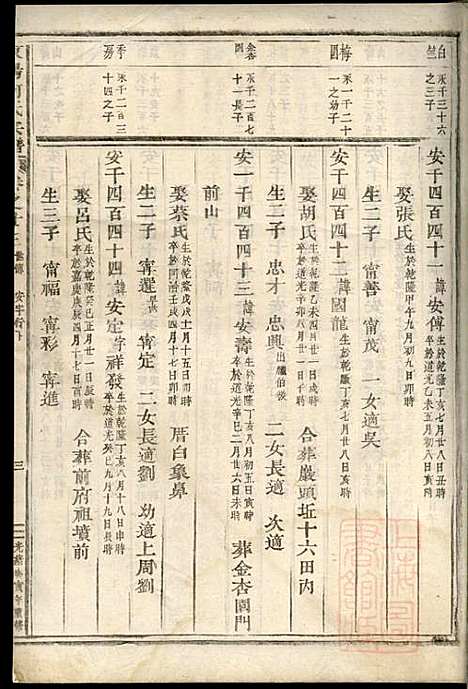 白竺
禾千三十六之三子
梅園
禾一千二十一之幼子
金杏園
禾千二百七十一長子
季房
禾千二百三十四之子
安千四百四十一 諱安傅 生於乾隆丁亥七月廿八日丑時 卒於道光乙未五月初六日亥時
娶張氏 生於乾隆甲午九月初九日時
生二子 甯善 甯茂 一女適吳
安千四百四十二 諱國龍 生於乾隆丁亥七月廿八日戌時
娶胡氏 生於乾隆乙未四月廿一日戌時 卒於道光辛巳八月廿一日午時 合葬嚴頭址十六田內
生二子 忠才 忠興 出繼伯後 二女長適 次適
安一千四百四十三 諱安壽 生於乾隆丁亥八月初五日寅時 卒於道光辛巳二月廿六日未時 葬金杏園門
前山
娶蔡氏 生於乾隆戊戌十月十五日卯時 卒於同治壬戌四月十七日卯時 厝白象鼻
生二子 甯選 早世 甯定 二女長適劉 幼適上周劉
安千四百四十四 諱安定 字祥發 生於乾隆丁亥八月十八日申時 卒於道光癸巳九月十九日辰時
娶呂氏 生於乾隆癸巳正月廿一日辰時 卒於嘉慶庚辰四月十七日酉時 合葬前府祖墳前
生三子 甯福 甯彩 甯進
安字行
三
光緒戊寅年重修